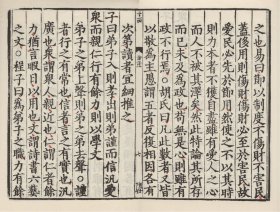 之也易曰節以制度不傷財不害民
蓋侈用則傷財傷財必至於害民故
愛民必先於節用然使之不以其時
則力本者不獲自盡雖有愛人之心
而人不被其澤矣然此特論其所存
而已未及為政也苟無是心則雖有
政不行焉胡氏曰凡此數者又皆
以敬為主愚謂五者反復相因各有
次第讀者宜細推之
子曰弟子入則孝出則弟謹而信汎愛
眾而親仁行有餘力則以學文
弟子之弟上聲則弟之弟去聲○謹
者行之有常也信者言之有實也汎
廣也眾謂眾人親近也仁謂仁者餘
力猶言暇日以用也文謂詩書六藝
之文○程子曰為弟子之職力有餘